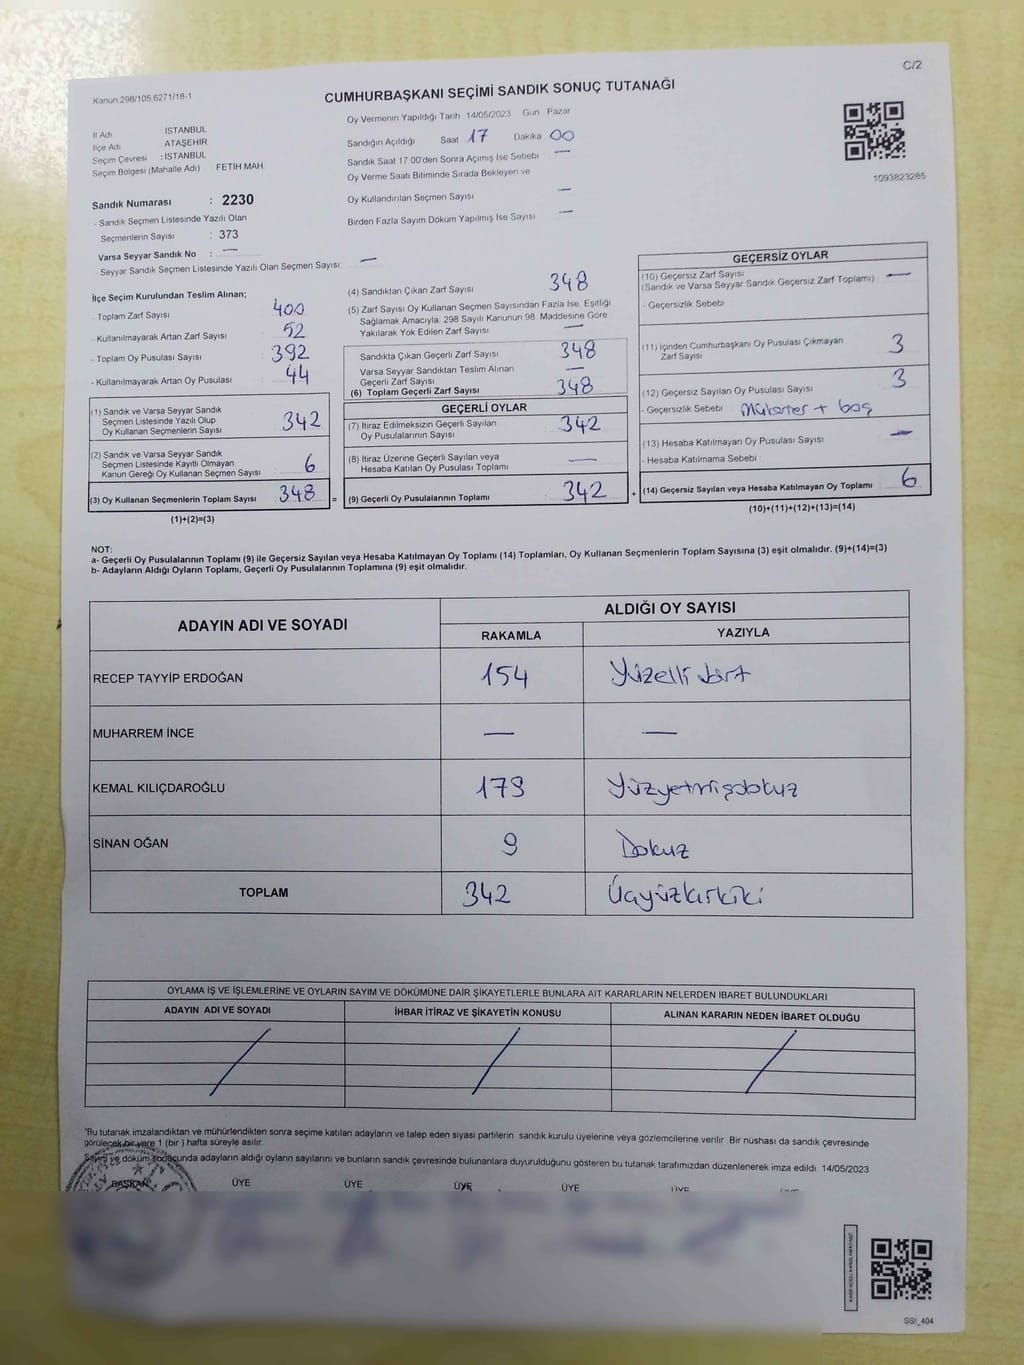 C/2
Kanun 298/105,6271/18-1
CUMHURBAŞKANI SEÇİMİ SANDIK SONUÇ TUTANAĞI
Oy Vermenin Yapıldığı Tarih 14/05/2023 Gün Pazar
İl Adı İSTANBUL
İlçe Adı ATAŞEHİR
Seçim Çevresi : İSTANBUL
Seçim Bölgesi (Mahalle Adı) FETİH MAH
Sandığın Açıldığı Saat 17 Dakika 00
Sandık Saat 17.00'den Sonra Açımış İse Sebebi —
Oy Verme Saati Bitiminde Sırada Bekleyen ve
Oy Kullandırılan Seçmen Sayısı —
Birden Fazla Sayım Döküm Yapılmış İse Sayısı —
1093823285
Sandık Numarası : 2230
- Sandık Seçmen Listesinde Yazılı Olan
Seçmenlerin Sayısı : 373
Varsa Seyyar Sandık No : —
- Seyyar Sandık Seçmen Listesinde Yazılı Olan Seçmen Sayısı: —
İlçe Seçim Kurulundan Teslim Alınan;
- Toplam Zarf Sayısı 400
- Kullanılmayarak Artan Zarf Sayısı 52
- Toplam Oy Pusulası Sayısı 392
- Kullanılmayarak Artan Oy Pusulası 44
(1) Sandık ve Varsa Seyyar Sandık
Seçmen Listesinde Yazılı Olup
Oy Kullanan Seçmenlerin Sayısı 342
(2) Sandık ve Varsa Seyyar Sandık
Seçmen Listesinde Kayıtlı Olmayan
Kanun Gereği Oy Kullanan Seçmen Sayısı 6
(3) Oy Kullanan Seçmenlerin Toplam Sayısı 348 =
(1)+(2)=(3)
(4) Sandıktan Çıkan Zarf Sayısı 348
(5) Zarf Sayısı Oy Kullanan Seçmen Sayısından Fazla İse, Eşitliği
Sağlamak Amacıyla, 298 Sayılı Kanunun 98. Maddesine Göre
Yakılarak Yok Edilen Zarf Sayısı —
Sandıkta Çıkan Geçerli Zarf Sayısı 348
Varsa Seyyar Sandıktan Teslim Alınan
Geçerli Zarf Sayısı —
(6) Toplam Geçerli Zarf Sayısı 348
GEÇERLİ OYLAR
(7) İtiraz Edilmeksizin Geçerli Sayılan
Oy Pusulalarının Sayısı 342
(8) İtiraz Üzerine Geçerli Sayılan veya
Hesaba Katılan Oy Pusulası Toplamı —
(9) Geçerli Oy Pusulalarının Toplamı 342 +
GEÇERSİZ OYLAR
(10) Geçersiz Zarf Sayısı —
(Sandık ve Varsa Seyyar Sandık Geçersiz Zarf Toplamı)
- Geçersizlik Sebebi
(11) İçinden Cumhurbaşkanı Oy Pusulası Çıkmayan
Zarf Sayısı 3
(12) Geçersiz Sayılan Oy Pusulası Sayısı 3
- Geçersizlik Sebebi Mükerrer + boş
(13) Hesaba Katılmayan Oy Pusulası Sayısı —
- Hesaba Katılmama Sebebi
(14) Geçersiz Sayılan veya Hesaba Katılmayan Oy Toplamı 6
(10)+(11)+(12)+(13)=(14)
NOT:
a- Geçerli Oy Pusulalarının Toplamı (9) ile Geçersiz Sayılan veya Hesaba Katılmayan Oy Toplamı (14) Toplamları, Oy Kullanan Seçmenlerin Toplam Sayısına (3) eşit olmalıdır. (9)+(14)=(3)
b- Adayların Aldığı Oyların Toplamı, Geçerli Oy Pusulalarının Toplamına (9) eşit olmalıdır.
ADAYIN ADI VE SOYADI
ALDIĞI OY SAYISI
RAKAMLA YAZIYLA
RECEP TAYYİP ERDOĞAN 154 Yüzelli dört
MUHARREM İNCE — —
KEMAL KILIÇDAROĞLU 179 Yüzyetmişdokuz
SİNAN OĞAN 9 Dokuz
TOPLAM 342 Üçyüzkırkiki
OYLAMA İŞ VE İŞLEMLERİNE VE OYLARIN SAYIM VE DÖKÜMÜNE DAİR ŞİKAYETLERLE BUNLARA AİT KARARLARIN NELERDEN İBARET BULUNDUKLARI
ADAYIN ADI VE SOYADI İHBAR İTİRAZ VE ŞİKAYETİN KONUSU ALINAN KARARIN NEDEN İBARET OLDUĞU
"Bu tutanak imzalandıktan ve mühürlendikten sonra seçime katılan adayların ve talep eden siyasi partilerin sandık kurulu üyelerine veya gözlemcilerine verilir. Bir nüshası da sandık çevresinde
görülecek bir yere 1 (bir) hafta süreyle asılır.
Sayım ve döküm sonucunda adayların aldığı oyların sayılarını ve bunların sandık çevresinde bulunanlara duyurulduğunu gösteren bu tutanak tarafımızdan düzenlenerek imza edildi. 14/05/2023
BAŞKAN ÜYE ÜYE ÜYE ÜYE ÜYE
SSI_404